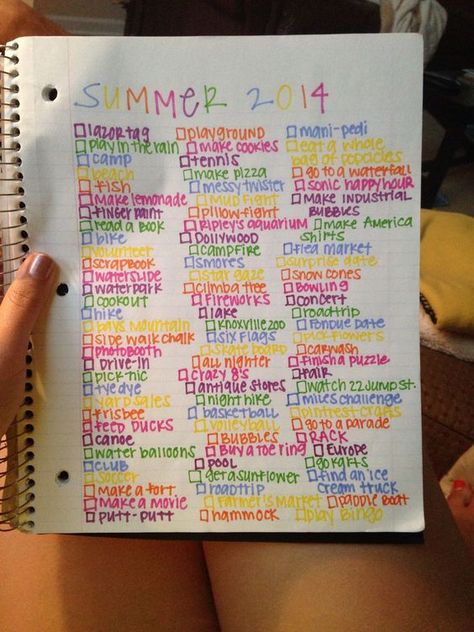 SUMMER 2014
lazor tag
play in the rain
camp
beach
fish
make lemonade
finger paint
read a book
bike
volunteer
scrapbook
waterslide
waterpark
cookout
hike
bays mountain
side walk chalk
photobooth
drive-in
picknic
tye dye
yard sales
frisbee
feed ducks
canoe
water balloons
club
soccer
make a fort
make a movie
putt-putt
playground
make cookies
tennis
make pizza
messy twister
mud fight
pillow fight
Ripley's aquarium
Dollywood
campfire
smores
star gaze
climb a tree
fireworks
lake
Knoxville zoo
six flags
skate board
all nighter
crazy 8's
antique stores
night hike
basketball
volleyball
bubbles
Buy a toe ring
pool
get a sunflower
roadtrip
farmer's market
hammock
mani-pedi
eat a whole
bag of popcicles
go to a waterfall
sonic happy hour
make industrial
bubbles
make America
shirts
flea market
surprise date
snow cones
bowling
concert
roadtrip
fondue date
pick flowers
carwash
finish a puzzle
fair
watch 22 Jump St.
miles challenge
pintrest crafts
go to a parade
RACK
Europe
go karts
find an ice
cream truck
paddle boat
play Bingo